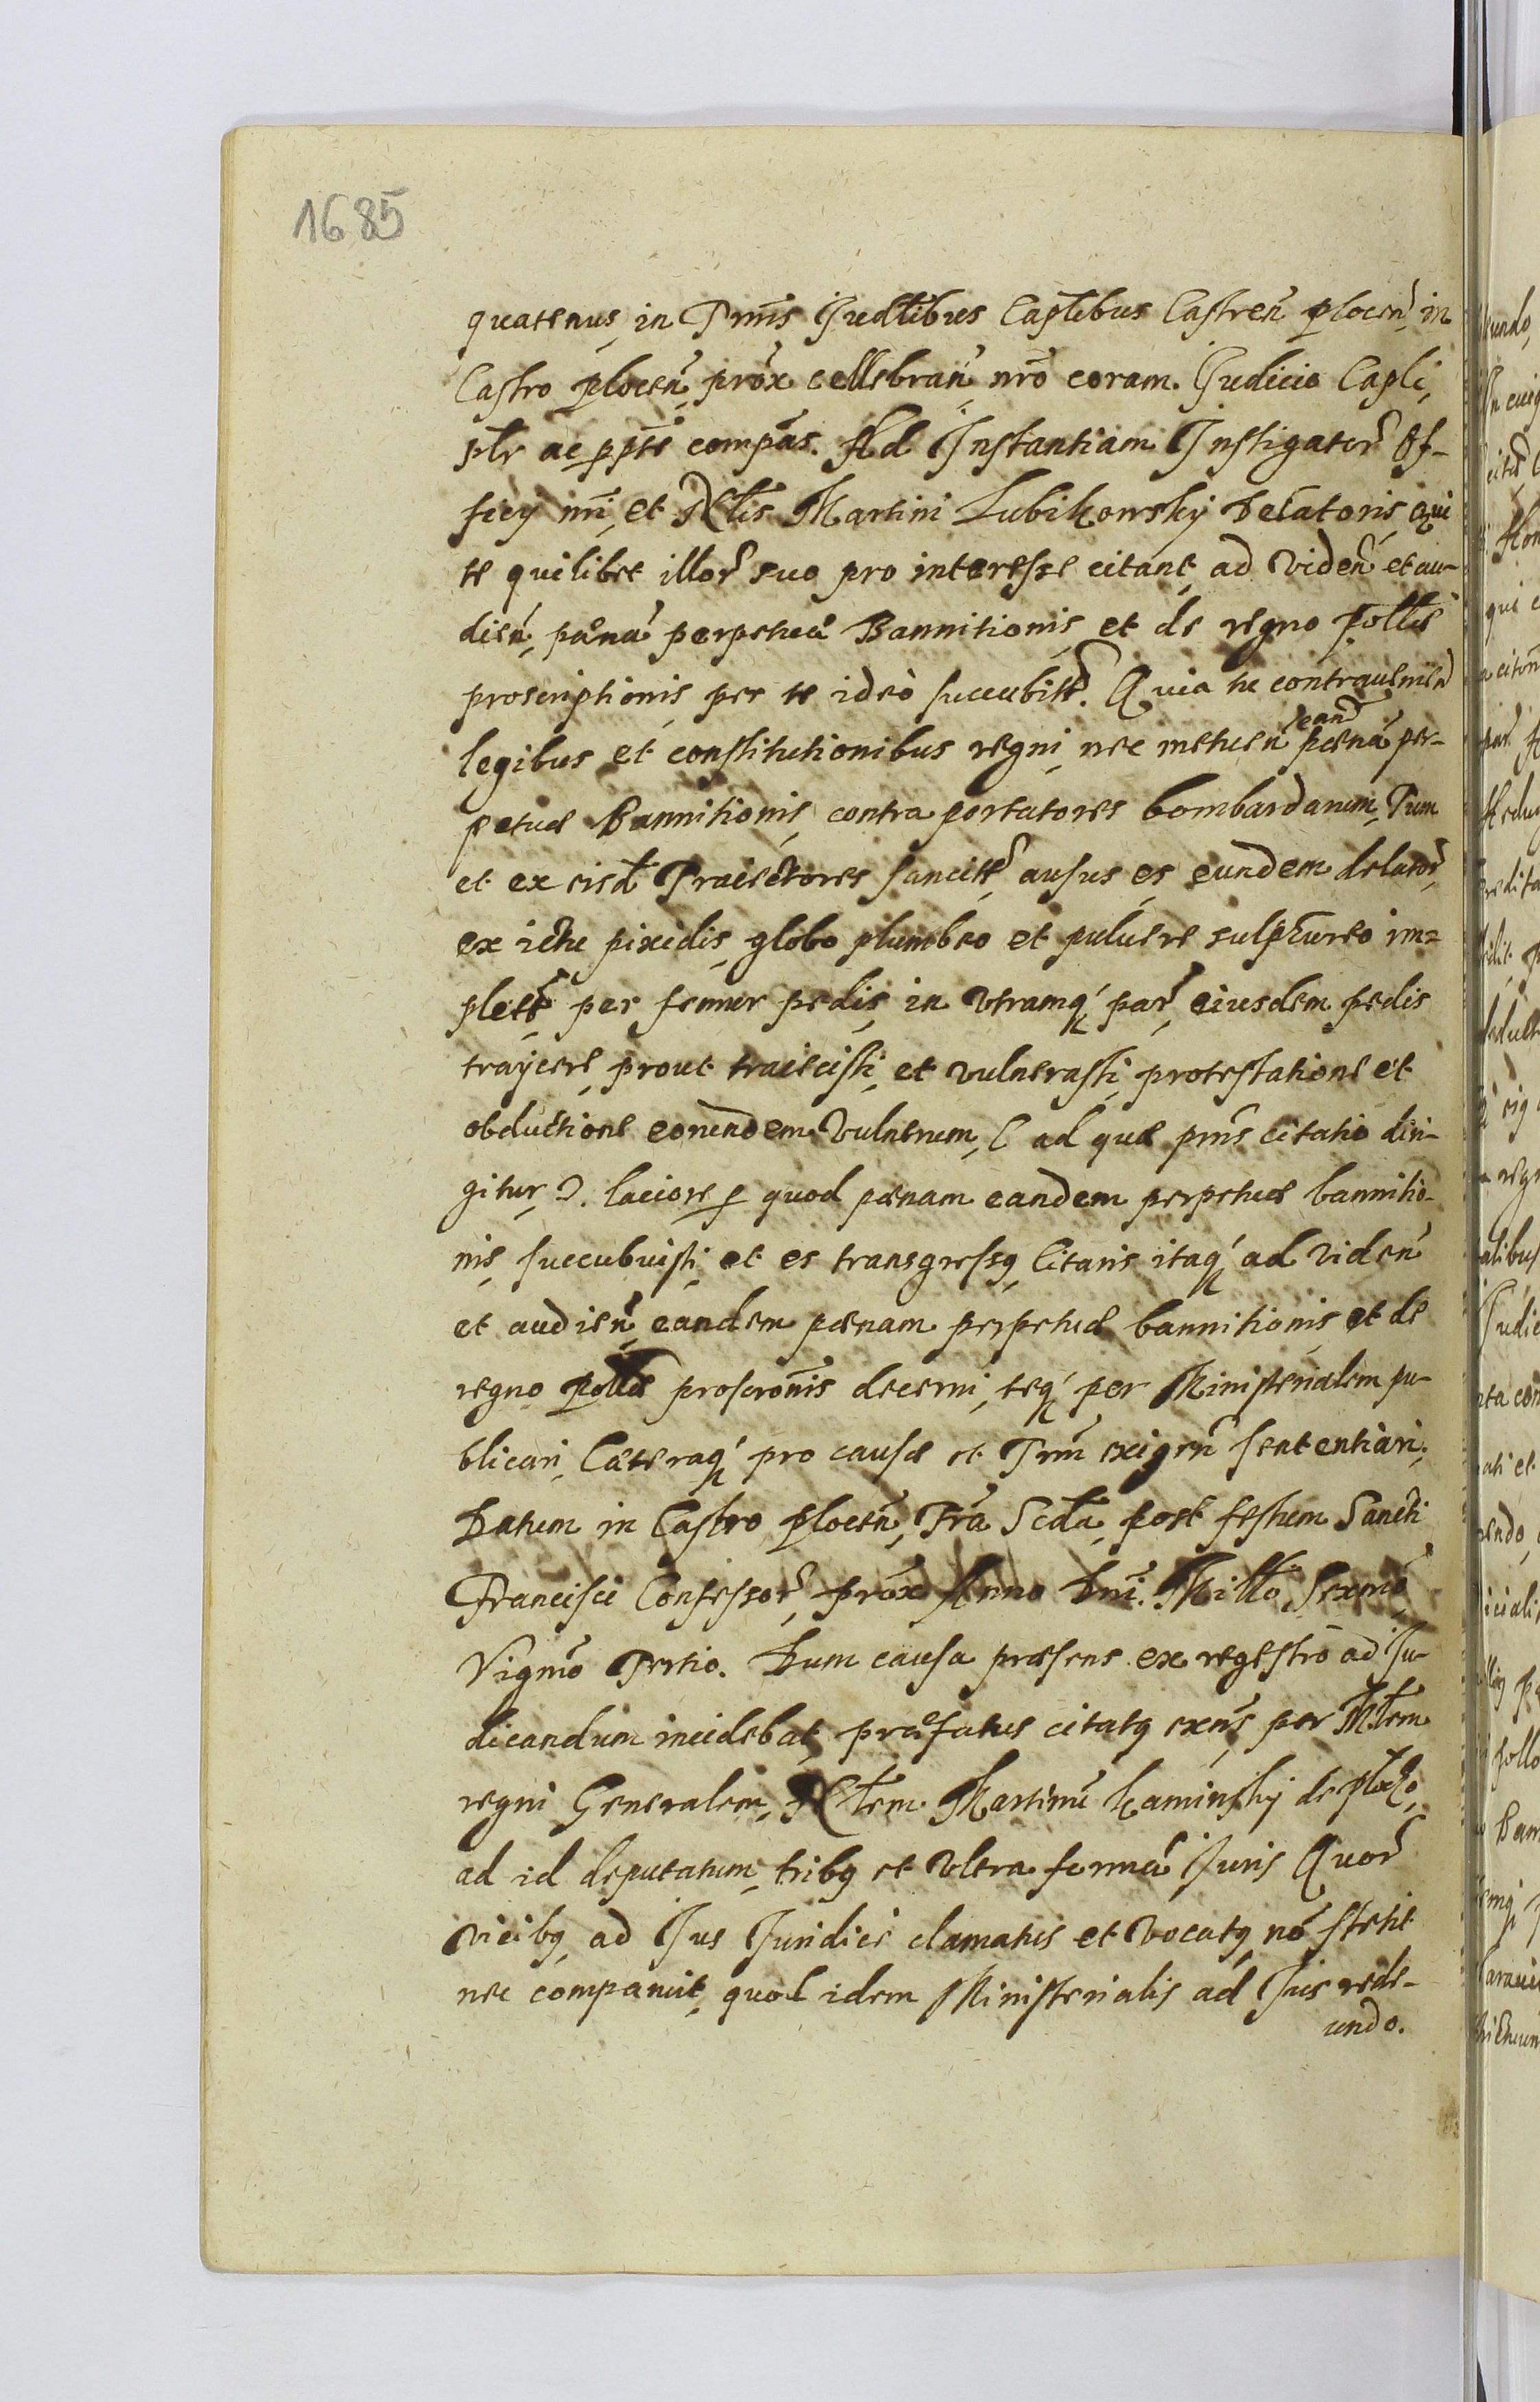 1685
quatenus, in Trm̃is Judl̃ibus Capl̃ibus Castreñ plocen̄, in
Castro plocen̄, prox cellebran̄, nrõ coram. Judicio Capli,
ptr ac ppt̃e compas. Ad Instantiam Instigatorꝭ Of-
ficy nri, et Nl̃is Martini Lubikowsky Delatoris, qui
te quilibet illorꝭ suo pro interesse citant, ad viden̄ et au-
dien̄, pœna perpetuæ Bannitionis et de regno poll̃e
proscriptionis, per te ideò succubitꝭ. Quia tu contraueniend
legibus et constitutionibus regni, nec metuen̄ eand pœnã per-
petuæ Bannitionis, contra portatores bombardarum, Tum
et ex eisd̃ Traiectores sancitꝭ, ausus es eundem delatorꝭ,
ex ictu pixidis, globo plumbeo et puluere sulphureo im=
pletꝭ, per femur pedis, in vtramq́ parꝭ, eiusdem pedis
traÿcere, prout traiecisti, et vulnerasti, protestatione et
obductione eorundem vulnerum, ( ad quæ pñs citatio diri-
gitur ). laciore ꝑ quod pœnam eandem perpetuæ bannitio-
nis, succubuisti, et es transgressꝰ, Citaris itaq́ ad viden̄
et audien̄, eandem pœnam perpetuæ bannitionis et de
regno poll̃e proscrõnis decerni, teq́ per Ministerialem pu-
blicari, Cæteraq́ pro causæ et Trm̃i exigen̄ sententiari.
Datum in Castro plocen̄, Frã Scdã, post festum Sancti
Francisci Confessorꝭ, prox Anno Dñi. Mill̃o, Sexmõ,
Vigmõ Tertio. Dum causa præsens ex regestro ad Ju-
dicandum incidebat, præfatus citatꝰ exñs, per M̃l̃em
regni Generalem, Nl̃em. Martinũ Kaminsky de plock̃o,
ad id deputatum, tribꝰ et vltra formã Juris Quorꝭ
vicibꝰ, ad Jus Juridicè clamatus et vocatꝰ, nõ stetit
nec comparuit, quod idem Ministerialis ad Jus rede-
undo.